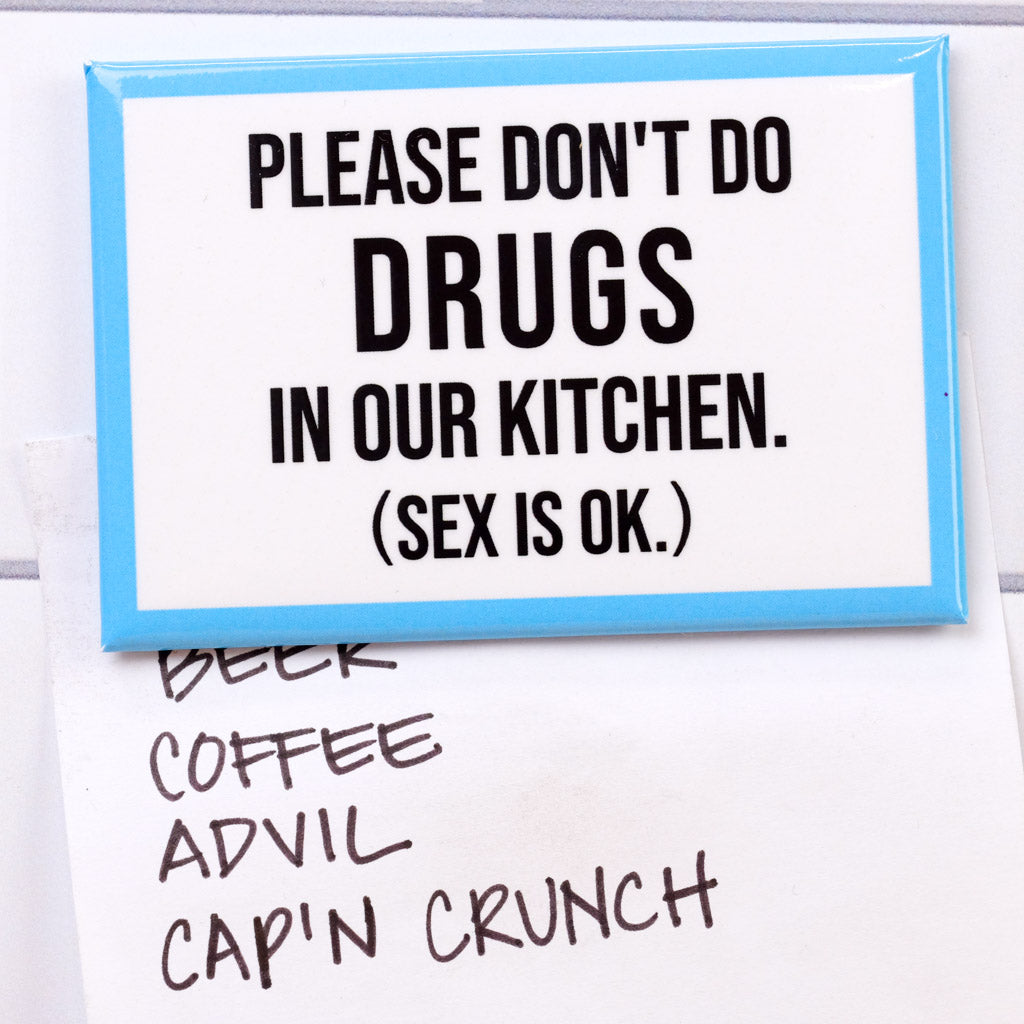 PLEASE DON'T DO
DRUGS
IN OUR KITCHEN.
(SEX IS OK.)
BEER
COFFEE
ADVIL
CAP'N CRUNCH